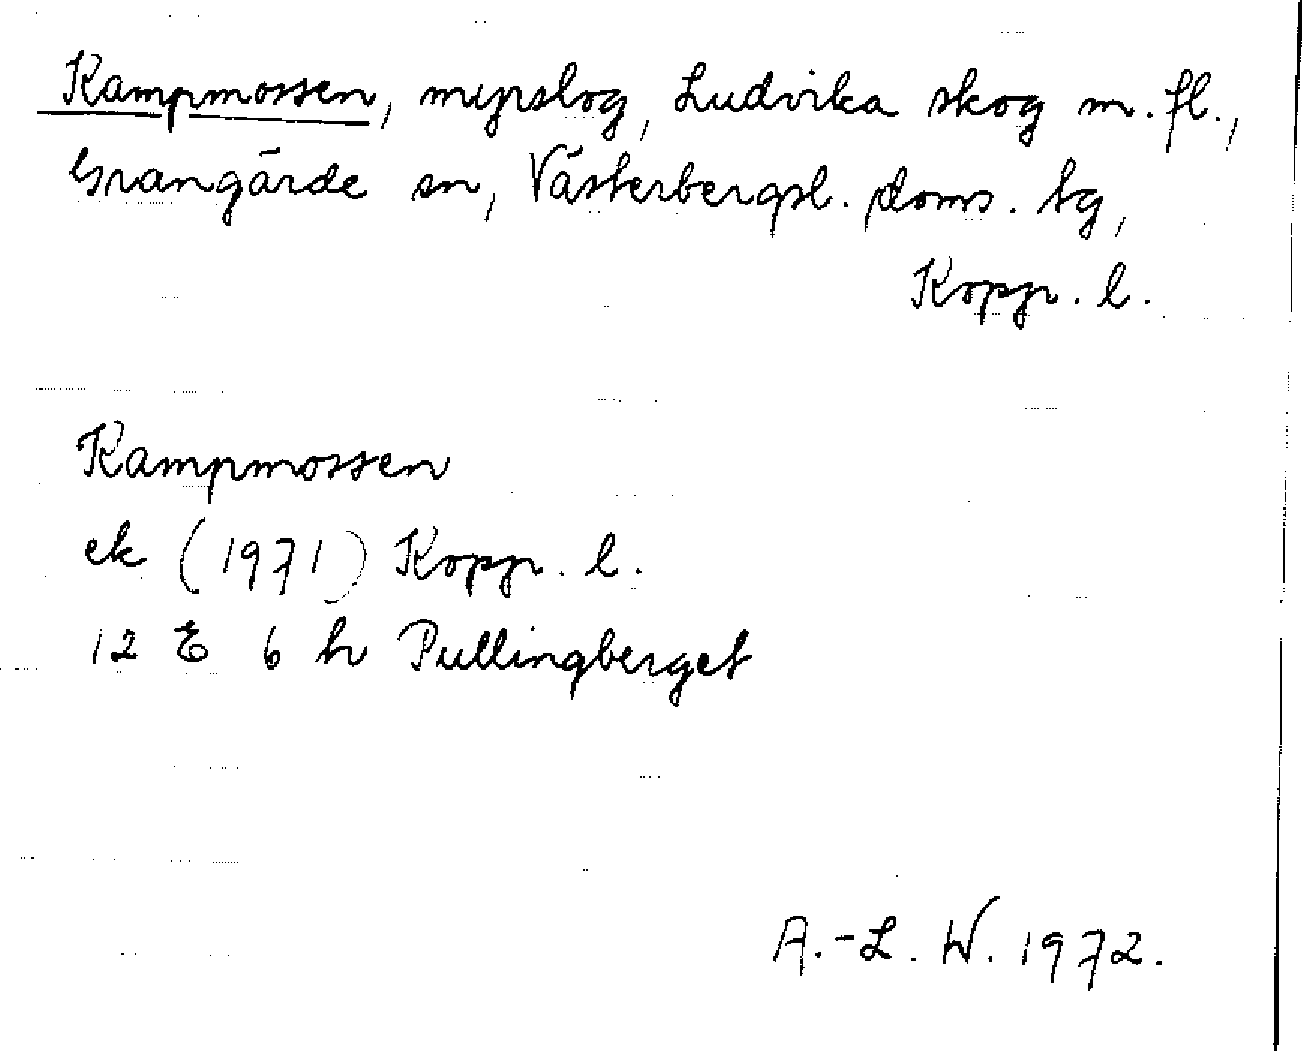 Kampmossen, myrslog, Ludvika skog m. fl.,
Grangärde sn, Västerbergsl. doms. tg,
Kopp. l.
Kampmossen
ek (1971) Kopp. l.
12 E 6 h Pullingberget
A.-L. W. 1972.